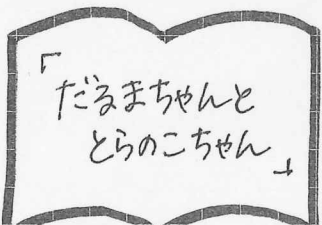 「だるまちゃんと
とらのこちゃん」